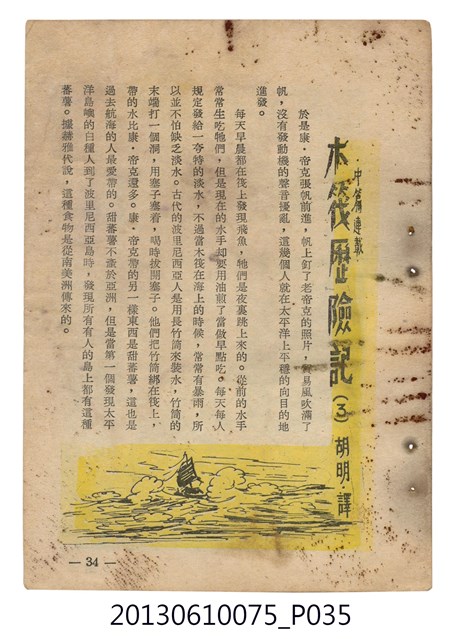 中篇連載
木筏歷險記（3）胡明譯
於是康·帝克張帆前進，帆上釘了老帝克的照片，貿易風吹滿了
帆，沒有發動機的聲音擾亂，這幾個人就在太平洋上平穩的向目的地
進發。
每天早晨都在筏上發現飛魚，牠們是夜裏跳上來的。從前的水手
常常生吃牠們，但是現在的水手却要用油煎了當做早點吃。每天每人
規定發給一夸特的淡水，不過當木筏在海上的時候，常常有暴雨，所
以並不怕缺乏淡水。古代的波里尼西亞人是用長竹筒來裝水，竹筒的
末端打一個洞，用塞子塞着，喝時拔開塞子。他們把竹筒綁在筏上，
帶的水比康·帝克還多。康·帝克帶的另一樣東西是甜蕃薯，這也是
過去航海的人最愛帶的。甜蕃薯不產於亞洲，但是當第一個發現太平
洋島嶼的白種人到了波里尼西亞島時，發現所有有人的島上都有這種
蕃薯。據赫雅代說，這種食物是從南美洲傳來的。
— 34 —
20130610075_P035